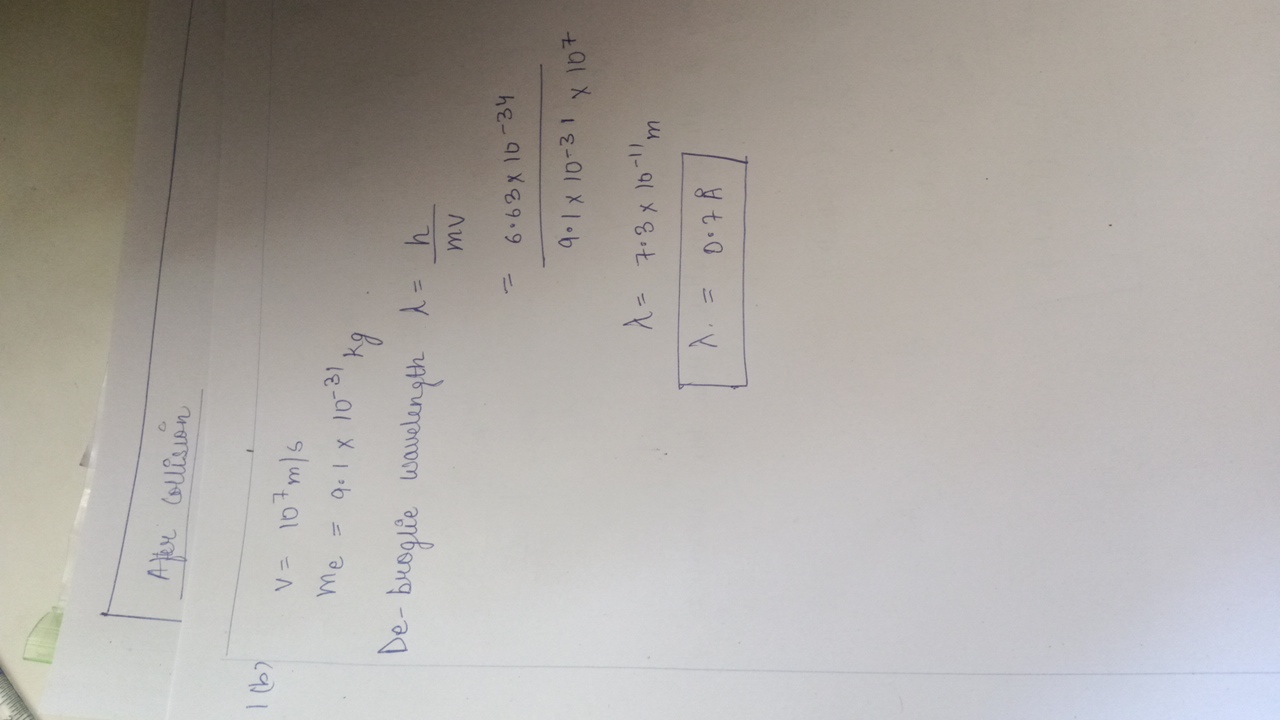 After collision
1(b)
v = 10⁷ m/s
me = 9.1 × 10⁻³¹ kg
De-broglie wavelength λ = h/mv
= 6.63 × 10⁻³⁴ / 9.1 × 10⁻³¹ × 10⁷
λ = 7.3 × 10⁻¹¹ m
λ. = 0.7 Å